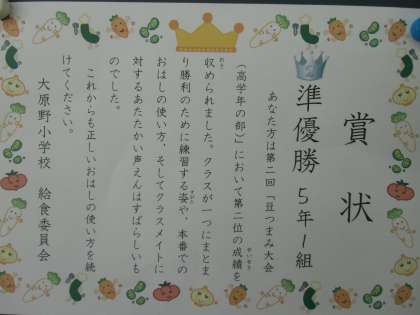 賞状
2
準優勝 5年1組
あなた方は第二回「豆つまみ大会
(高学年の部)」において第二位の成績を
収められました。クラスが一つにまとま
り勝利のために練習する姿や、本番での
おはしの使い方、そしてクラスメイトに
対するあたたかい声えんはすばらしいも
のでした。
これからも正しいおはしの使い方を続
けてください。
大原野小学校 給食委員会